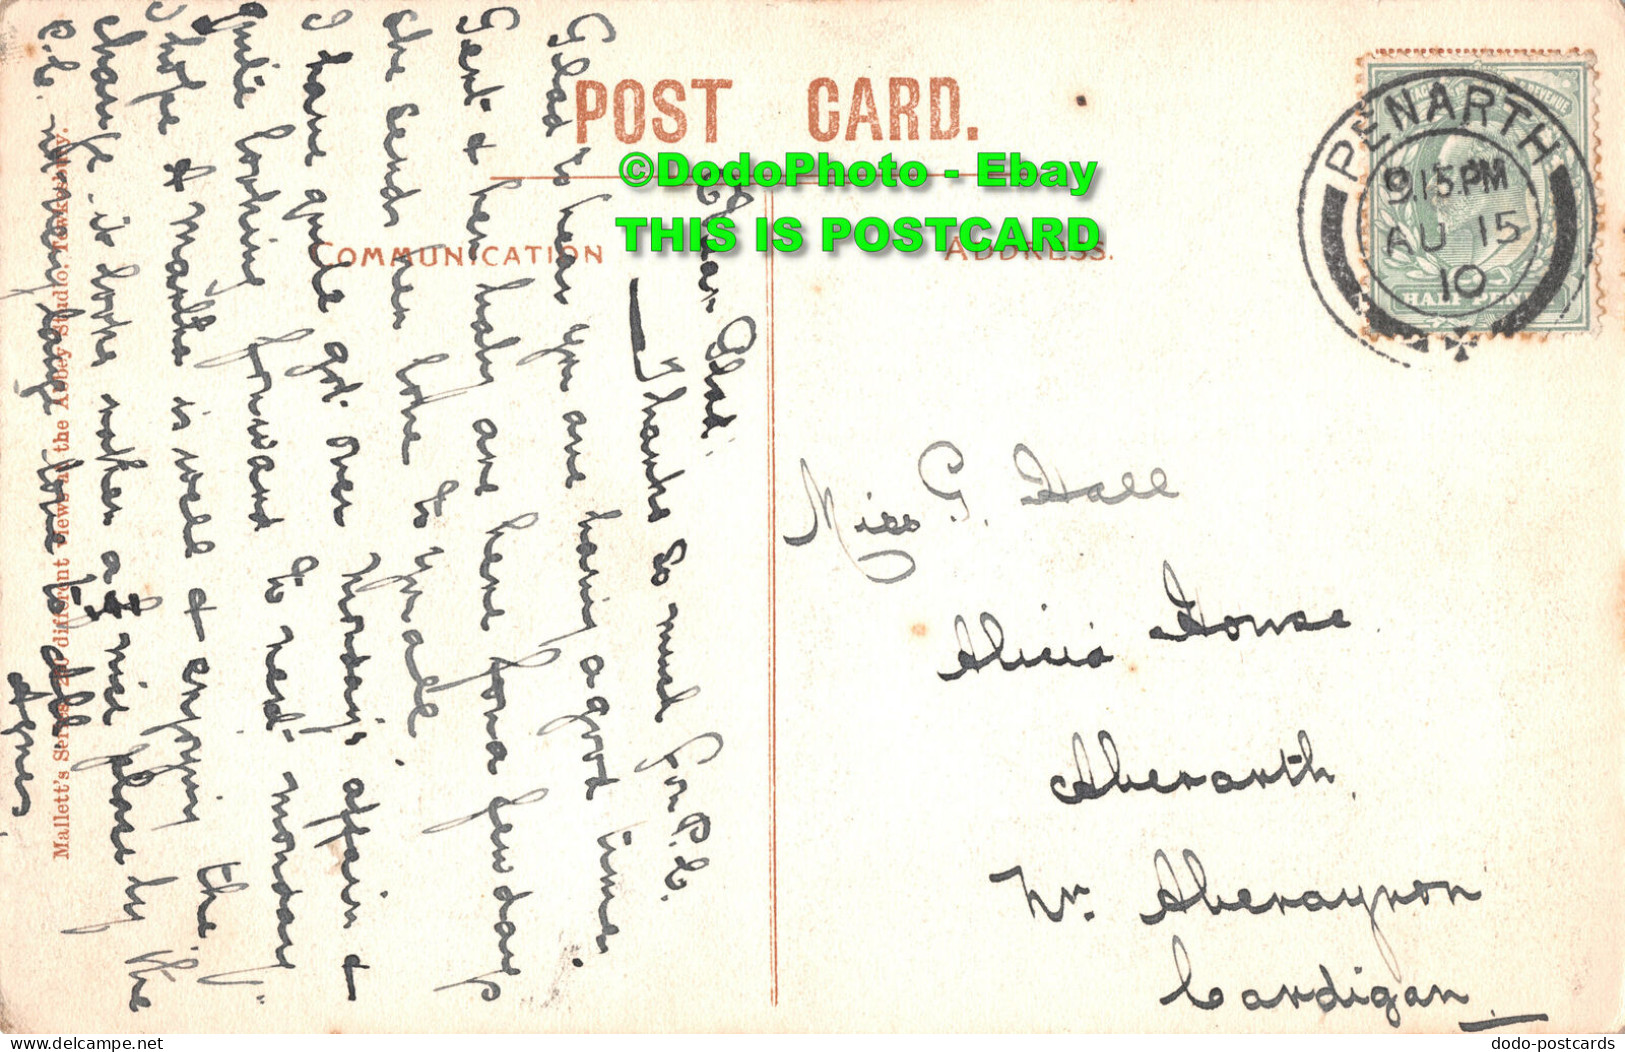 POST CARD.
©DodoPhoto - Ebay
THIS IS POSTCARD
COMMUNICATION
ADDRESS.
PENARTH
9.15.PM
AU 15
10
HALF PENNY
Dear Glad.
Thanks so much for P.C.
Glad to hear you are having a good time.
Gert & her baby are here for a few days
she sends her love to you all.
I have quite got over Monday's affair &
quite looking forward to next Monday
I hope & Martha is well & enjoying the
change, it looks rather a nice place by the
P.C. love to all.
Agnes
Miss G. Hall
Alicia House
Aberarth
Nr. Aberayron
Cardigan
Mallett's Series 250 different views at the Abbey Studio, Tewkesbury.
dodo-postcards
delcampe.net